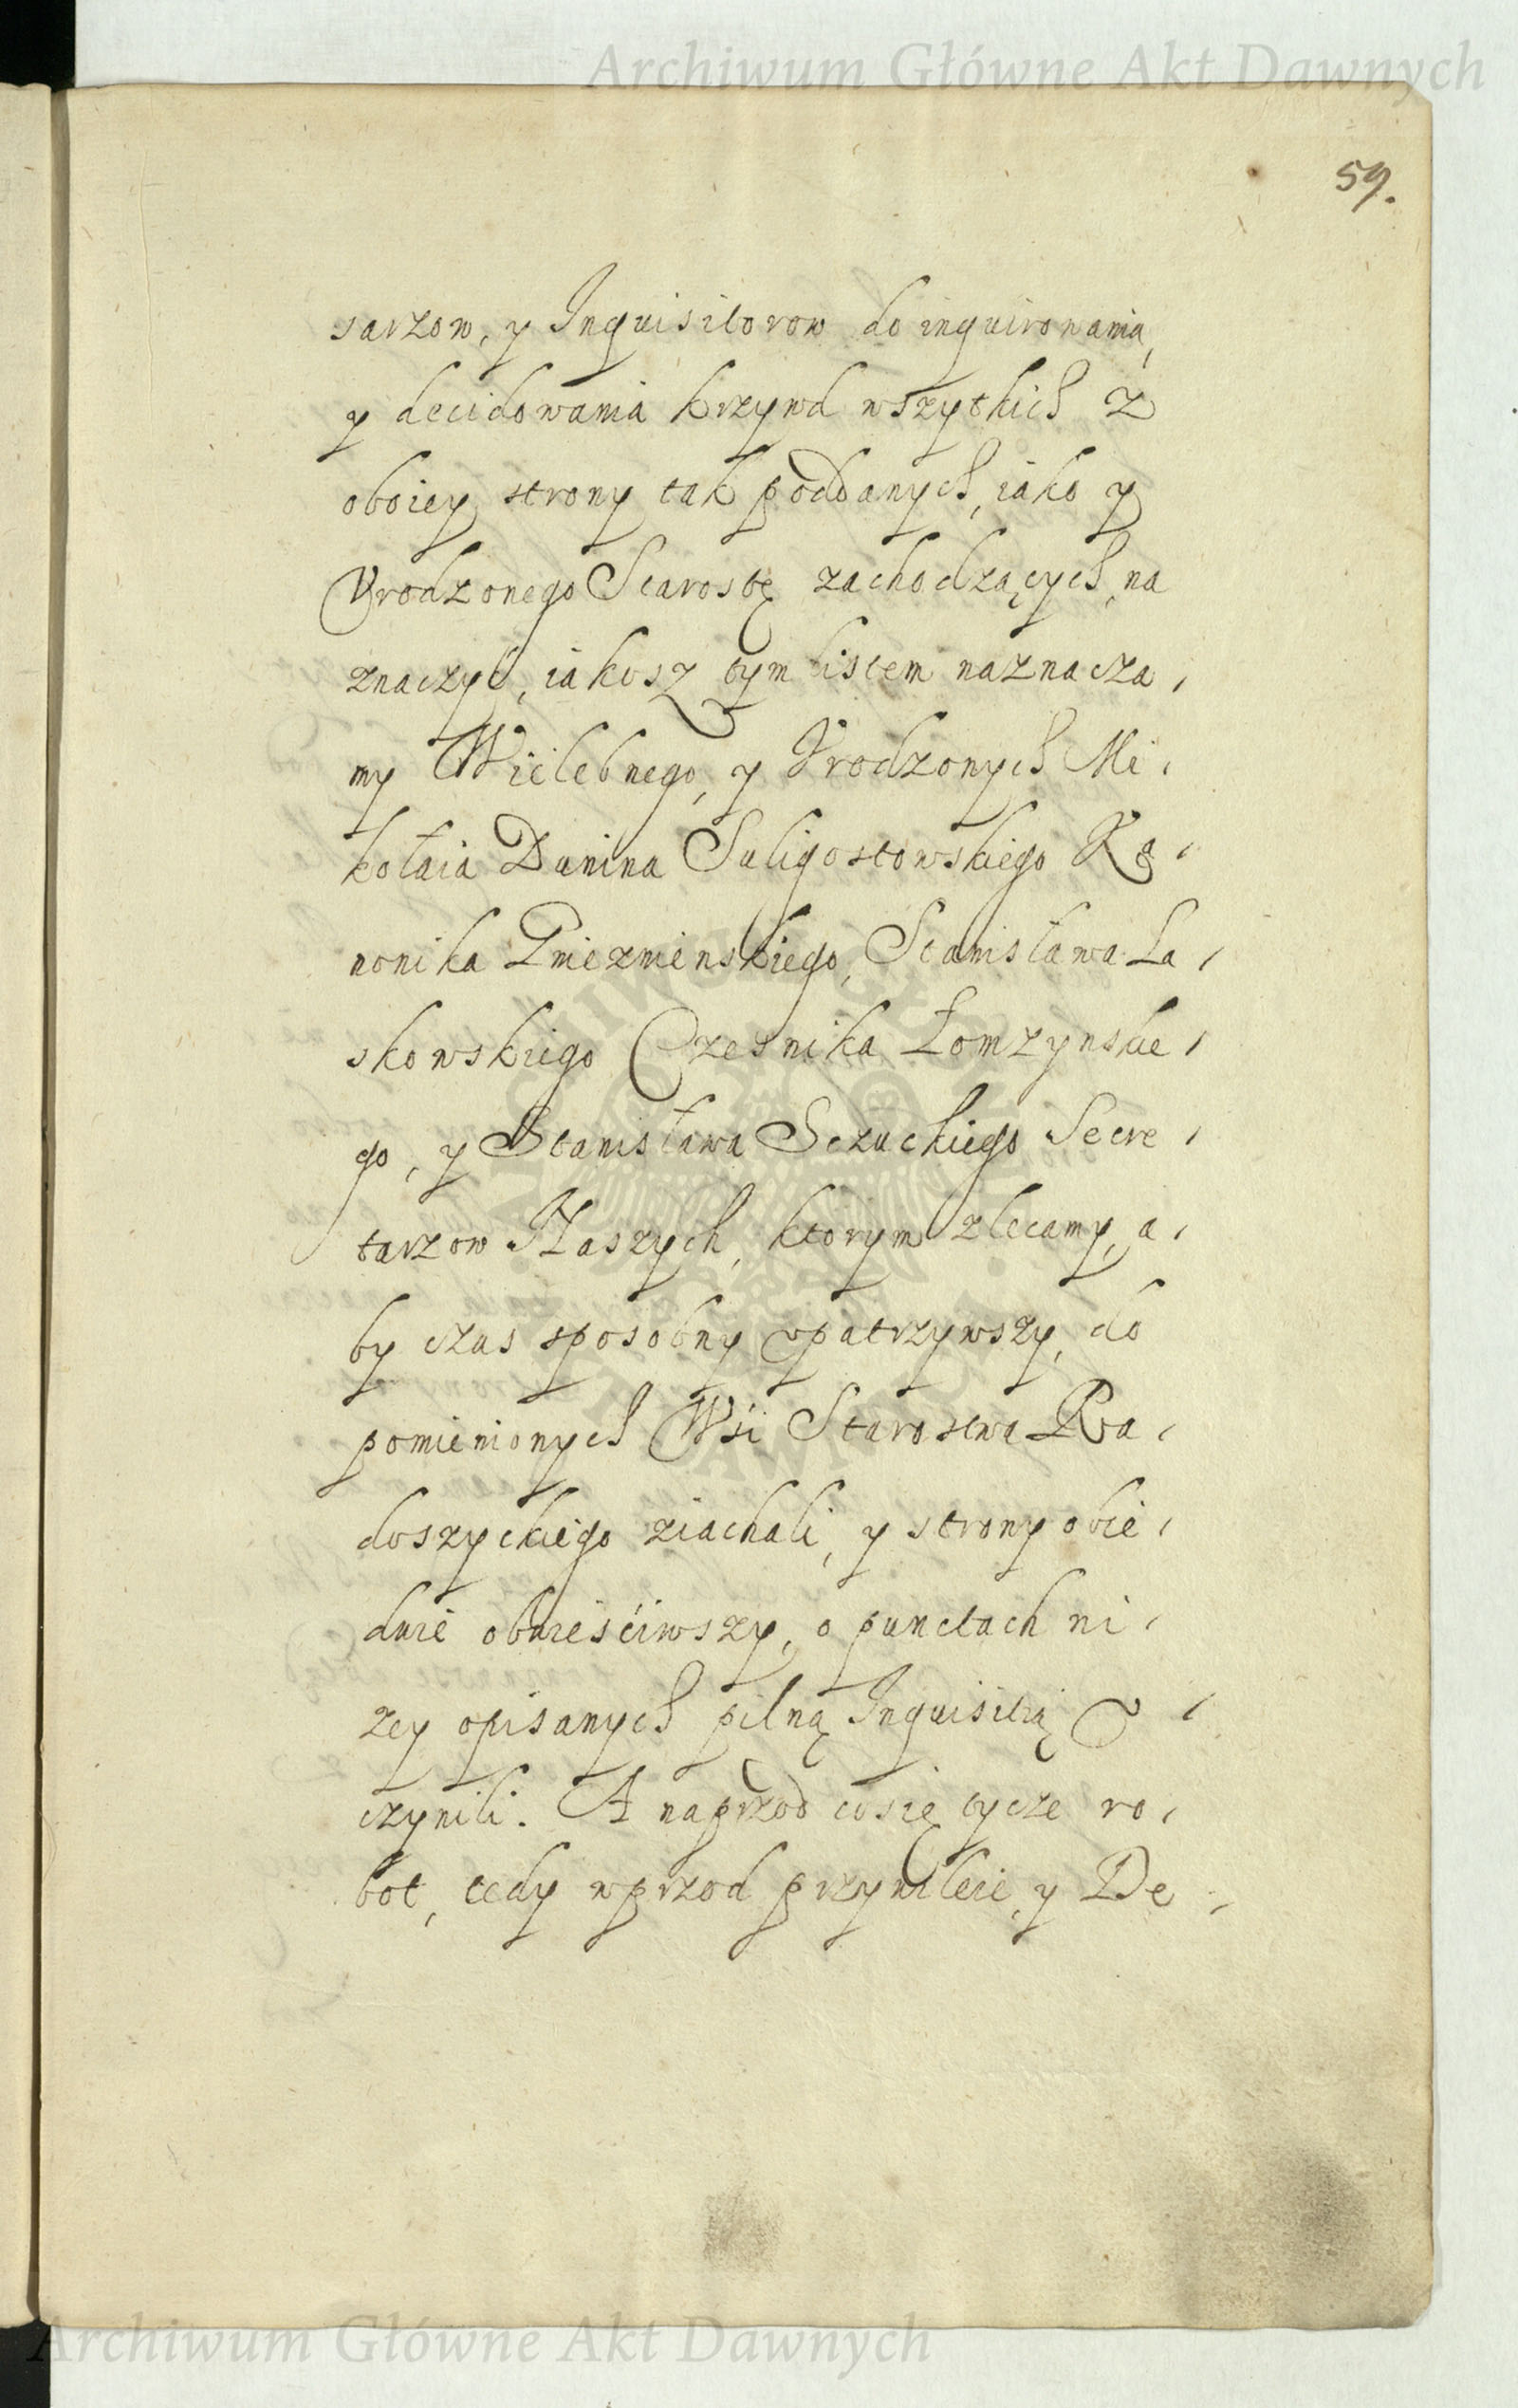 Archiwum Główne Akt Dawnych
59.
sarzow, y Inquisitorow do inquirowania,
y decidowania krzywd wszytkich z
oboiey strony tak poddanych, iako y
Vrodzonego Starostę zachodzących, na
znaczyć, iakosz tym listem naznacza,
my Wielebnego, y Vrodzonych Mi,
kołaia Dunina Suligostowskiego Ka,
nonika Gnieznienskiego, Stanisława La,
skowskiego Czesnika Łomzynskie,
go, y Stanisława Sczuckiego Secre,
tarzow Naszych, ktorym zlecamy, a,
by czas sposobny vpatrzywszy, do
pomienionych Wśi Starostwa Ra,
doszyckiego ziachali, y strony obie,
dwie obwieśćiwszy, o punctach ni,
zey opisanych pilną Inquisitią v,
czynili. A naprzod co się tycze ro,
bot, tedy wprzod przywileie, y De,
Archiwum Główne Akt Dawnych